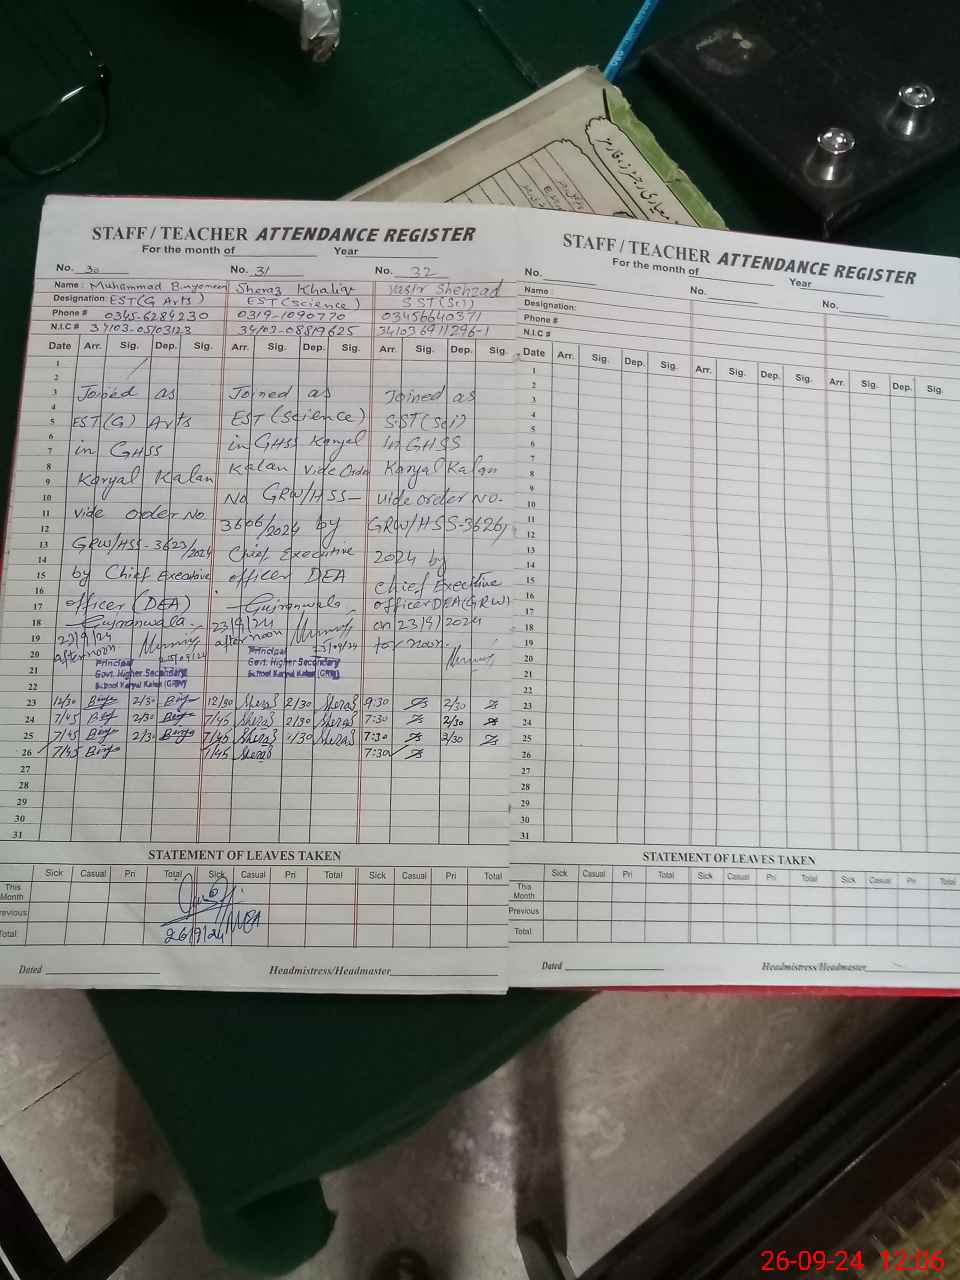 معیاری رجسٹر و فارمز
STAFF / TEACHER ATTENDANCE REGISTER
For the month of Year
No. 30 No. 31 No. 32
Name : Muhammad Binyameen Sheraz Khaliq Yasir Shehzad
Designation: EST(G Arts) EST (Science) SST(Sci)
Phone # 0345-6284230 0319-1090770 03456640371
N.I.C # 34103-0510312 34103-08819625 34103 6911296-1
Date Arr. Sig. Dep. Sig. Arr. Sig. Dep. Sig. Arr. Sig. Dep. Sig.
1
2
3
4
5
6
7
8
9
10
11
12
13
14
15
16
17
18
19
20
21
22
Joined as
EST(G) Arts
in GHSS
Karyal Kalan
vide order No.
GRW/HSS-3623/2024
by Chief Executive
officer (DEA)
Gujranwala.
23/9/24
afternoon
25/09/24
Principal
Govt. Higher Secondary
School Karyal Kalan (GRW)
Joined as
EST (Science)
in GHSS Karyal
Kalan Vide Order
No GRW/HSS-
3606/2024 by
Chief Executive
officer DEA
Gujranwala
23/9/24
afternoon
25/09/24
Principal
Govt. Higher Secondary
School Karyal Kalan (GRW)
Joined as
SST(Sci)
in GHSS
Karyal Kalan
vide order No.
GRW/HSS-3626/
2024 by
Chief Executive
officer DEA(GRW)
on 23/9/2024
for noon.
23 12/30 Binya 2/30 Binya 12/30 Sheraz 2/30 Sheraz 9:30 2/30
24 7/45 Binya 2/30 Binya 7/45 Sheraz 2/30 Sheraz 7:30 2/30
25 7/45 Binya 2/30 Binya 7/45 Sheraz 2/30 Sheraz 7:30 2/30
26 7/45 Binya 7/45 Sheraz 7:30
27
28
29
30
31
STATEMENT OF LEAVES TAKEN
Sick Casual Pri Total Sick Casual Pri Total Sick Casual Pri Total
This Month
Previous
Total
MEA
26/9/24
Dated Headmistress/Headmaster
STAFF / TEACHER ATTENDANCE REGISTER
For the month of Year
No. No. No.
Name :
Designation:
Phone #
N.I.C #
Date Arr. Sig. Dep. Sig. Arr. Sig. Dep. Sig. Arr. Sig. Dep. Sig.
1
2
3
4
5
6
7
8
9
10
11
12
13
14
15
16
17
18
19
20
21
22
23
24
25
26
27
28
29
30
31
STATEMENT OF LEAVES TAKEN
Sick Casual Pri Total Sick Casual Pri Total Sick Casual Pri Total
This Month
Previous
Total
Dated Headmistress/Headmaster
26-09-24 12:06